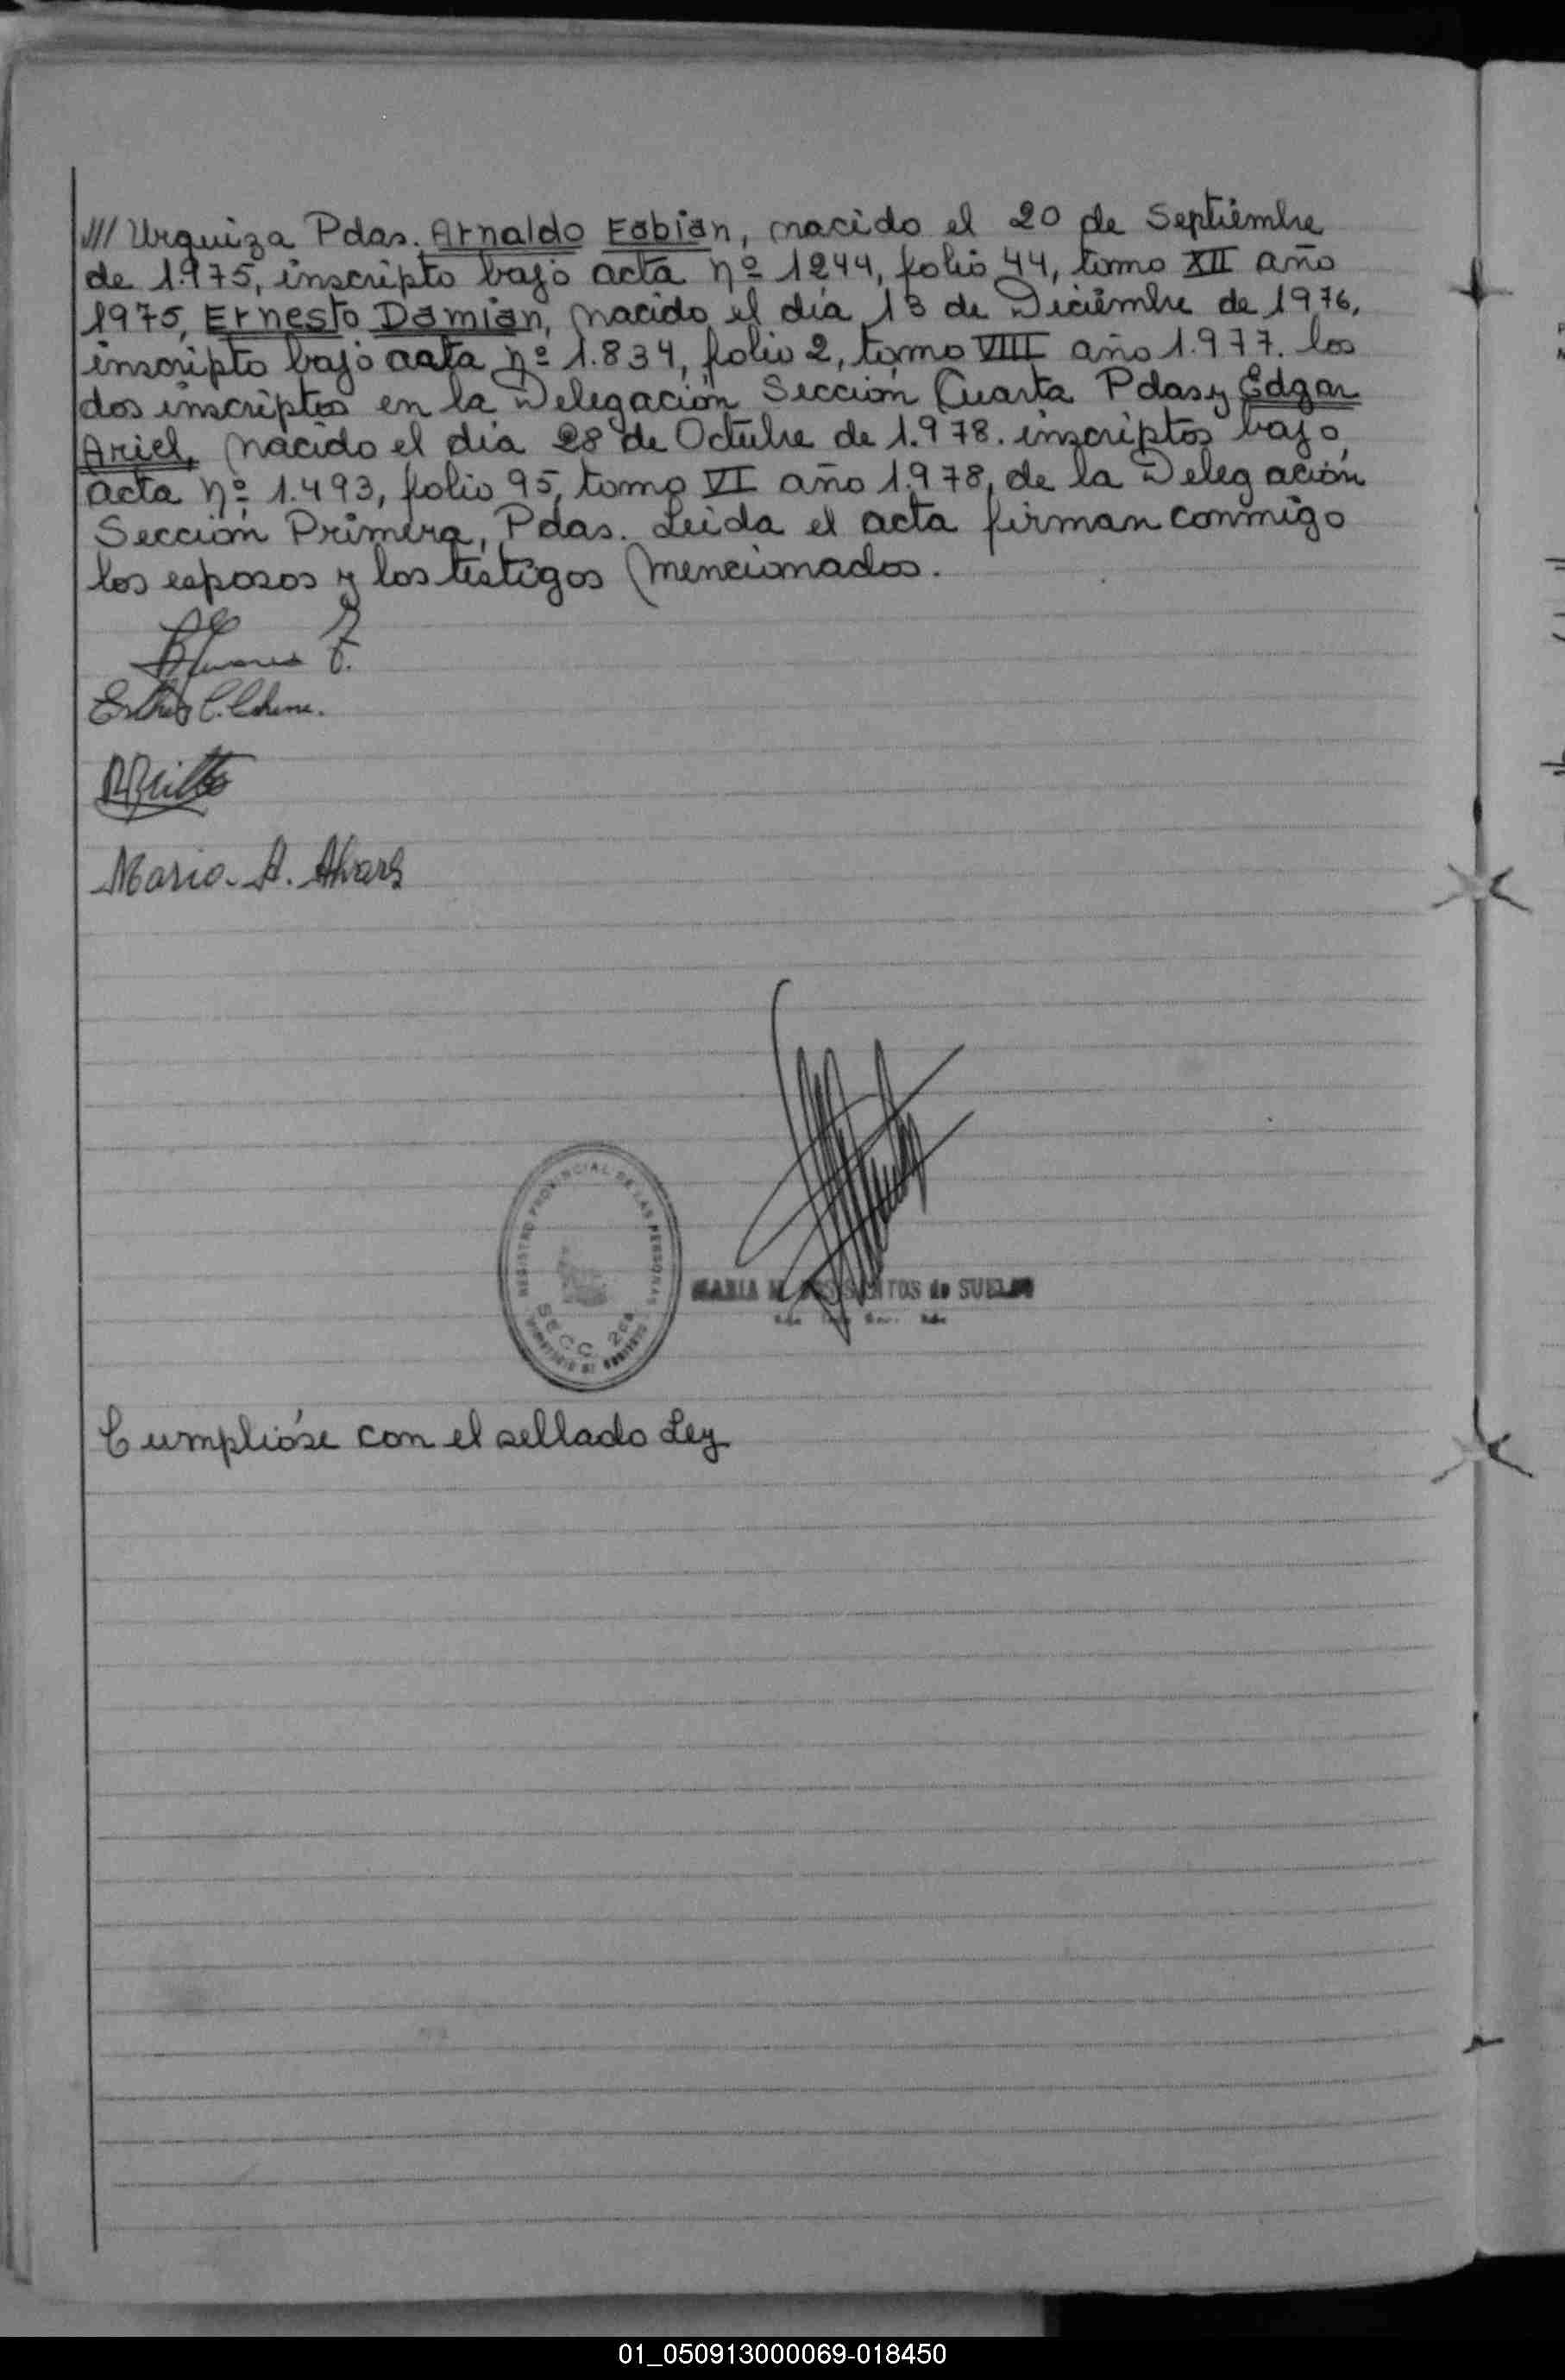 /// Urquiza Pdas. Arnaldo Fabián, nacido el 20 de Septiembre
de 1.975, inscripto bajo acta nº 1244, folio 44, tomo XII año
1975, Ernesto Damián, nacido el día 13 de Diciembre de 1976,
inscripto bajo acta nº 1.834, folio 2, tomo VIII año 1.977. los
dos inscriptos en la Delegación Sección Cuarta Pdas y Edgar
Ariel, nacido el día 28 de Octubre de 1.978. inscriptos bajo
acta nº 1.493, folio 95, tomo VI año 1.978, de la Delegación
Sección Primera, Pdas. Leida el acta firman conmigo
los esposos y los testigos mencionados.
Mario. A.
REGISTRO PROVINCIAL DE LAS PERSONAS
SECC. 2da
MARIA M. SANTOS de SUELDO
Cumplióse con el sellado Ley
01_050913000069-018450